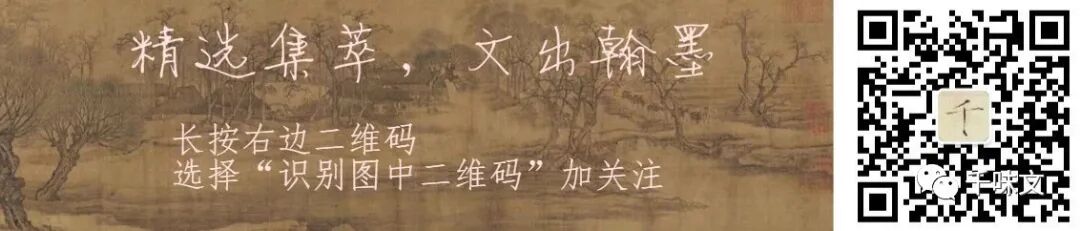 精选集萃，文出翰墨
长按右边二维码
选择“识别图中二维码”加关注
千
千味文